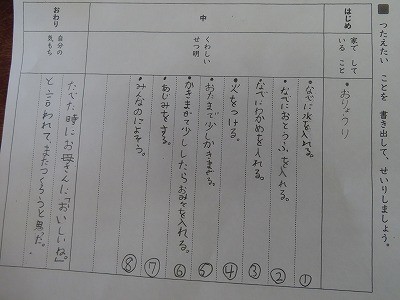 ■ つたえたい ことを 書き出して、せいりしましょう。
はじめ
家で して
いる こと
・おりょうり
中
くわしい
せつ明
・なべに水を入れる。 ①
・なべにおとうふを入れる。 ②
・なべにわかめを入れる。 ③
・火をつける。 ④
・おたまで少しかきまぜる。 ⑤
・かきまぜて少ししたらおみそを入れる。 ⑥
・あじみをする。 ⑦
・みんなのによそう。 ⑧
おわり
自分の
気もち
たべた時にお母さんに「おいしいね。」
と言われて、またつくろうと思った。